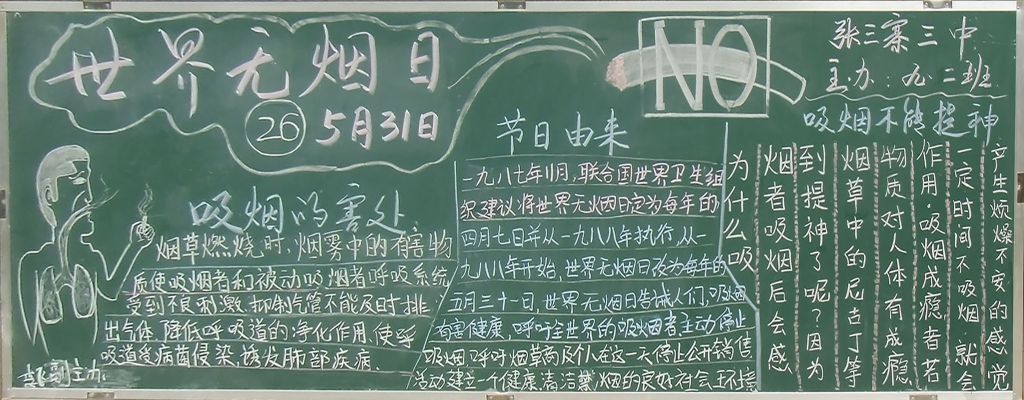 世界无烟日
26
5月31日
NO
张三寨三中
主办:九二班
吸烟的害处
烟草燃烧时,烟雾中的有害物
质使吸烟者和被动吸烟者呼吸系统
受到不良刺激,抑制气管不能及时排
出气体,降低呼吸道的净化作用,使呼
吸道受病菌侵染,诱发肺部疾病。
主办
节日由来
一九八七年11月,联合国世界卫生组
织建议将世界无烟日定为每年的
四月七日并从一九八八年执行,从一
九八八年开始,世界无烟日改为每年的
五月三十一日,世界无烟日告诫人们,吸烟
有害健康,呼吁全世界的吸烟者主动停止
吸烟,呼吁烟草商及个人在这一天停止公开销售
活动建立一个健康清洁禁烟的良好社会环境
吸烟不能提神
为什么吸
烟者吸烟后会感
到提神了呢?因为
烟草中的尼古丁等
物质对人体有成瘾
作用.吸烟成瘾者若
一定时间不吸烟就会
产生烦燥不安的感觉